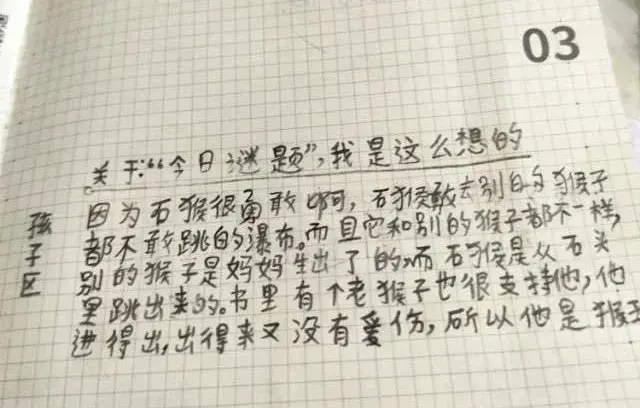 03
关于:“今日谜题”,我是这么想的
孩子区
因为石猴很勇敢啊,石猴敢去别的猴子
都不敢跳的瀑布。而且它和别的猴子都不一样,
别的猴子是妈妈生出了的,而石猴是从石头
里跳出来的。书里有个老猴子也很支持他,他
进得出,出得来又没有爱伤,所以他是猴王